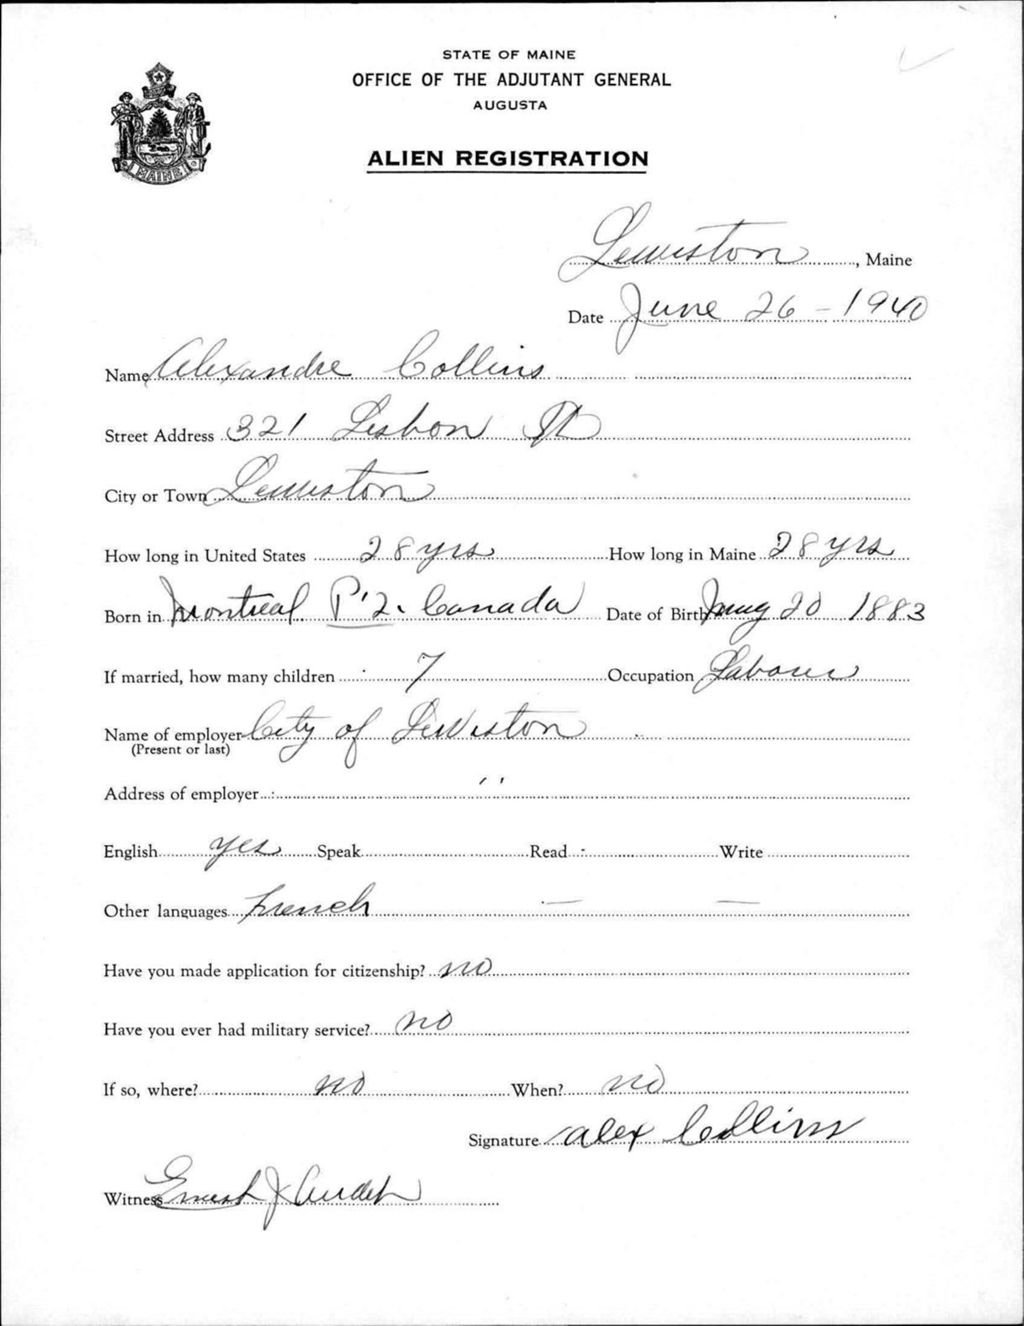 STATE OF MAINE
OFFICE OF THE ADJUTANT GENERAL
AUGUSTA
ALIEN REGISTRATION
MAINE
Lewiston, Maine
Date June 26 - 1940
Name Alexandre Collins
Street Address 321 Lisbon St
City or Town Lewiston
How long in United States 28 yrs How long in Maine 28 yrs
Born in Montreal P.Q. Canada Date of Birth May 20 1883
If married, how many children 7 Occupation Laborer
Name of employer City of Lewiston
(Present or last)
Address of employer " "
English yes Speak Read - Write
Other languages French — —
Have you made application for citizenship? no
Have you ever had military service? no
If so, where? no When? no
Signature Alex Collins
Witness Ernest J Audet